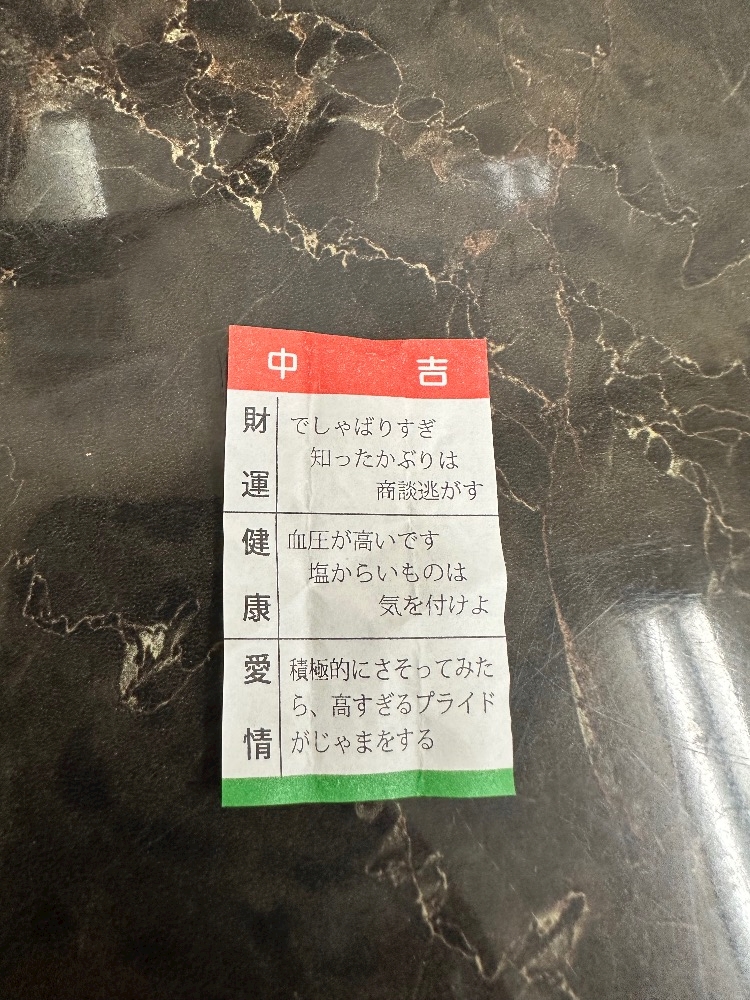 中吉
財運
でしゃばりすぎ
知ったかぶりは
商談逃がす
健康
血圧が高いです
塩からいものは
気を付けよ
愛情
積極的にさそってみた
ら、高すぎるプライド
がじゃまをする